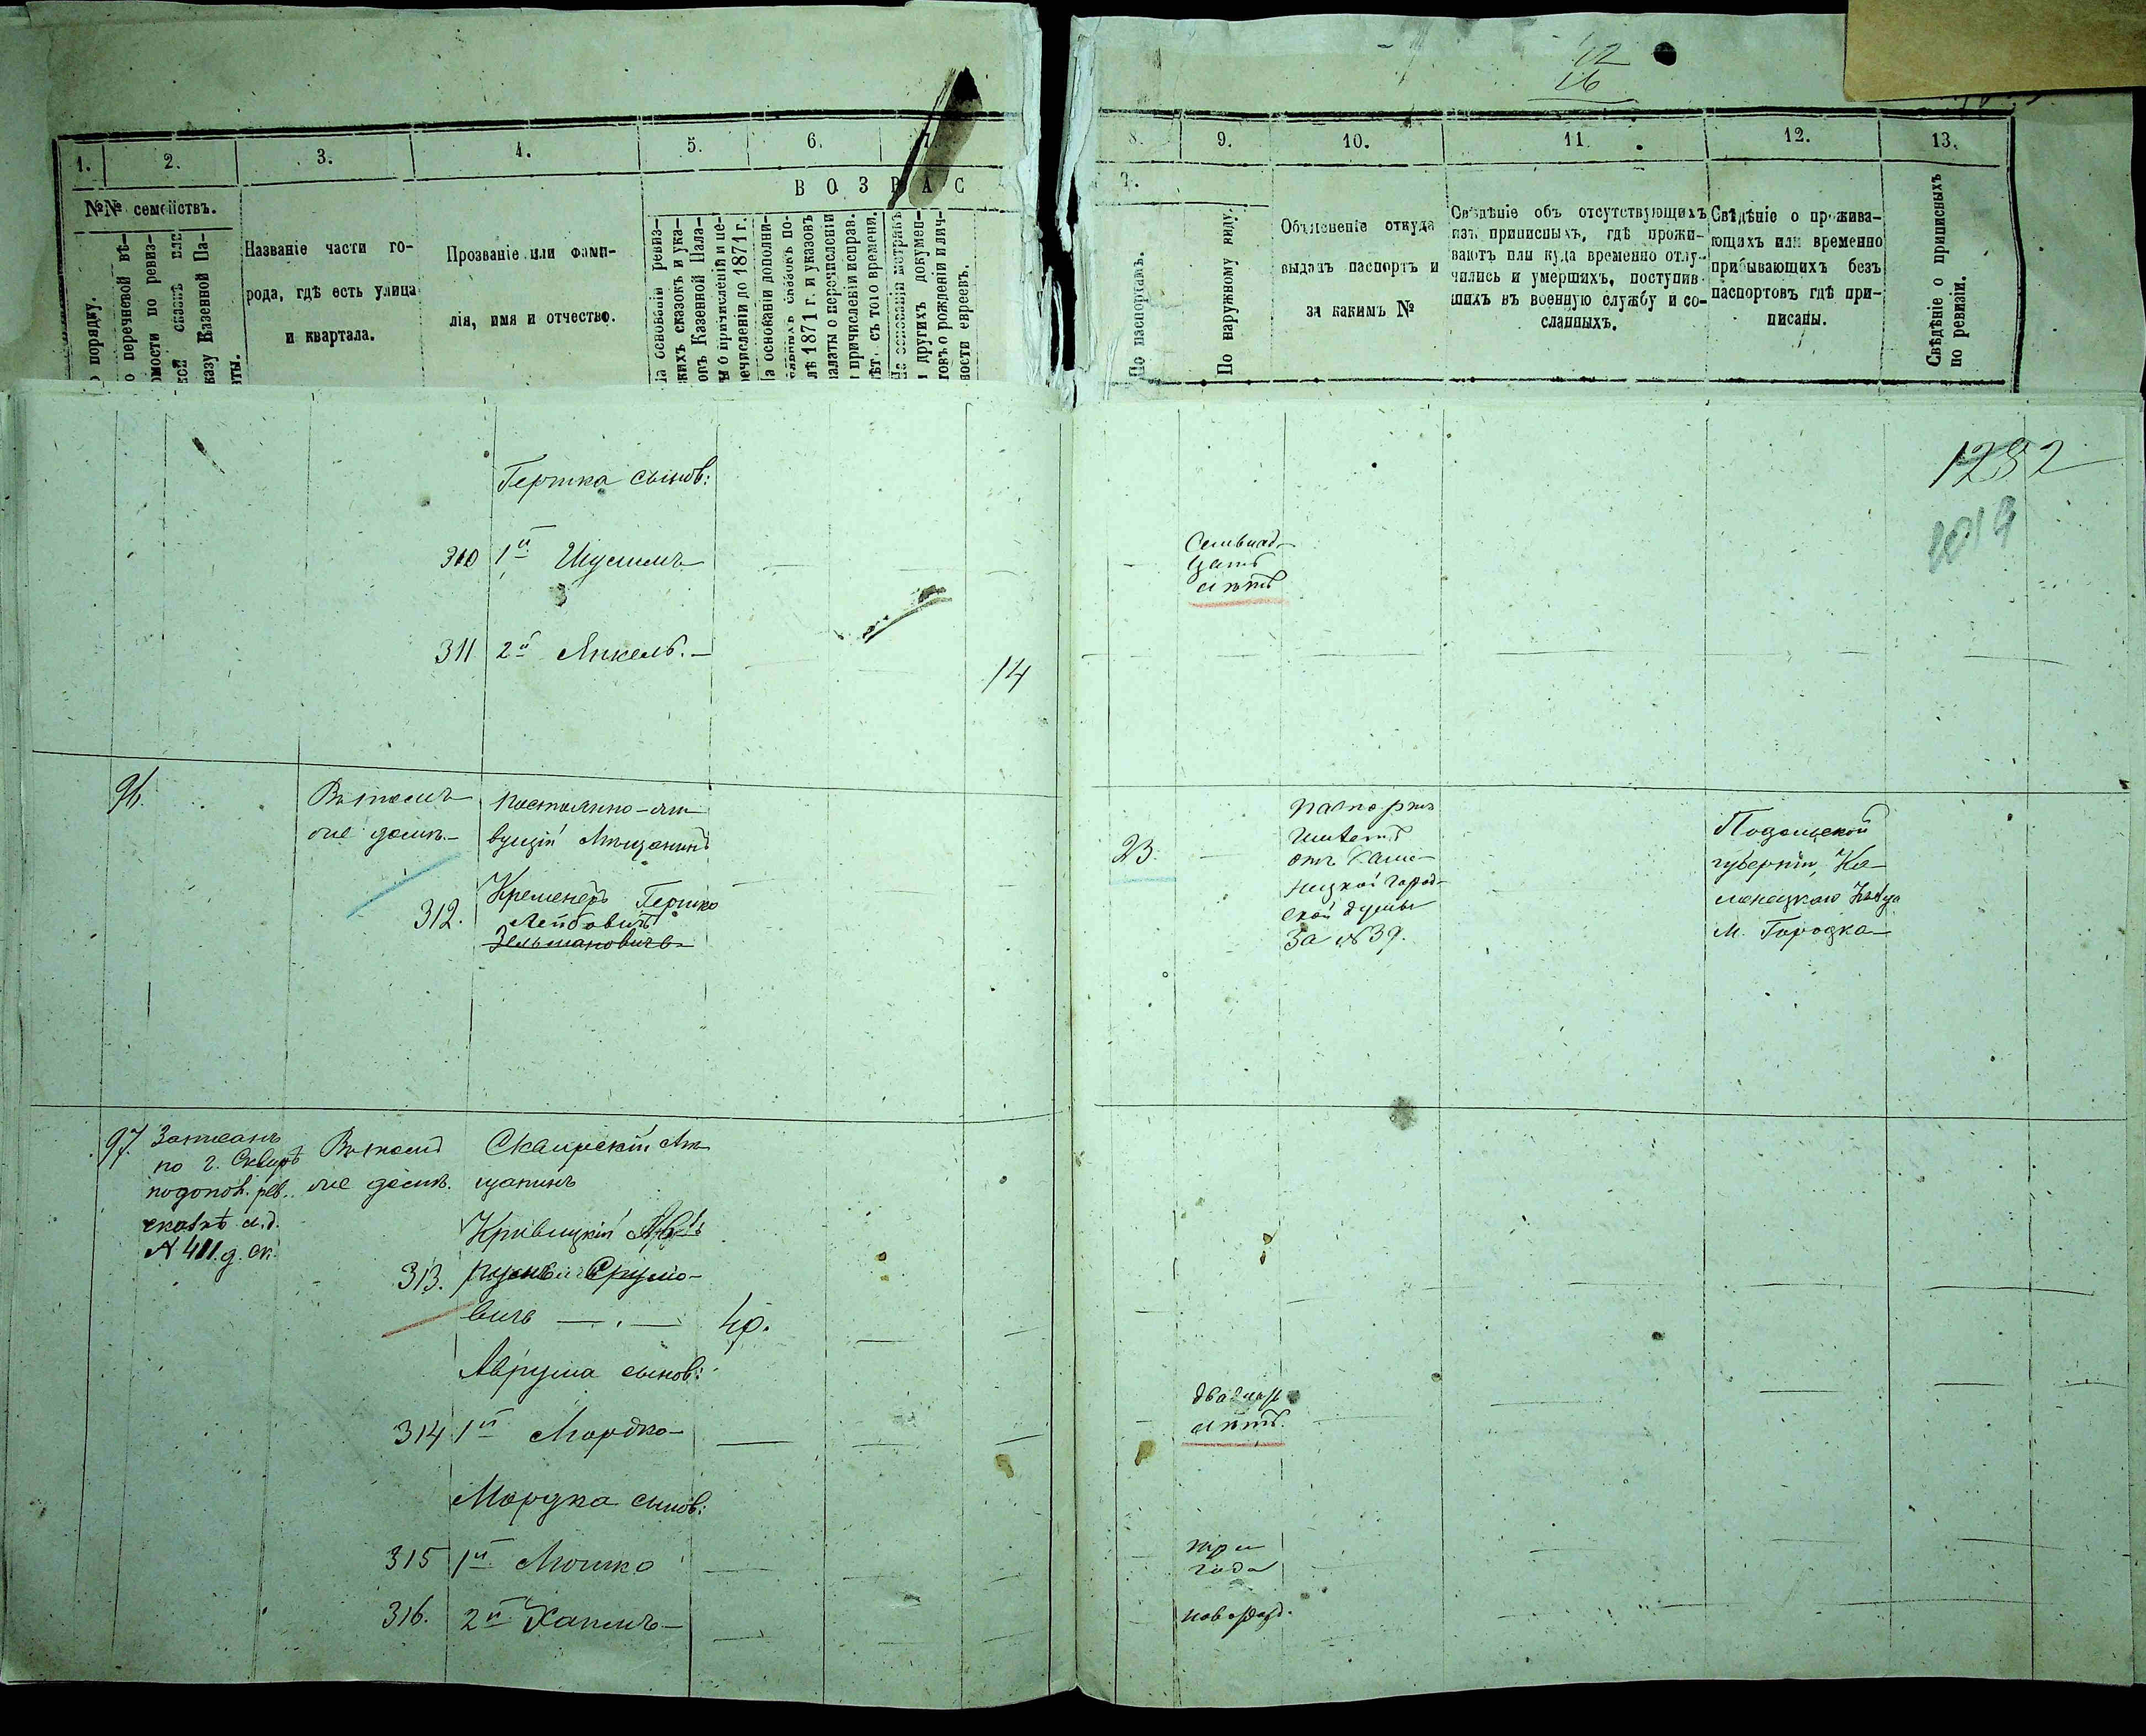 1. 2. 3. 4. 5. 6. 7
ВОЗРАС
№№ семействъ.
порядку.
перечневой вѣ-
мости по ревиз-
сказкѣ или
казу Казенной Па-
Названіе части го-
рода, гдѣ есть улица
и квартала.
Прозваніе или фами-
лія, имя и отчество.
На основаніи ревиз-
скихъ сказокъ и ука-
зовъ Казенной Пала-
ы о причисленіи и пе-
речисленіи до 1871 г.
а основаніи дополни-
сказокъ по-
лѣ 1871 г. и указовъ
алаты о перечисленіи
и причисленіи исправ.
лѣт. съ того времени.
На основаніи метрикъ
и другихъ докумен-
товъ о рожденіи и лич-
ности евреевъ.
12
16
8. 9. 10. 11. 12. 13.
Т.
По паспортамъ.
По наружному виду.
Объясненіе откуда
выданъ паспортъ и
за какимъ №
Свѣдѣніе объ отсутствующихъ
изъ приписныхъ, гдѣ прожи-
ваютъ или куда временно отлу-
чились и умершихъ, поступив-
шихъ въ военную службу и со-
сланныхъ.
Свѣдѣніе о прожива-
ющихъ или временно
прибывающихъ безъ
паспортовъ гдѣ при-
писаны.
Свѣдѣніе о приписныхъ
по ревизіи.
1282
Гершка сынов:
310 1й Шулимъ
Семьнад-
цать
лѣтъ
311 2й Янкель.
14
96.
Въ томъ
же домѣ.
постоянно-жи
вущій Мѣщанинъ
312. Кременеръ Гершко
Лейбовичъ
Зельмановичъ
23.
паспортъ
отъ Каме-
ницкой город-
ской думы
за №39.
Подольской
губерніи, Ка-
менецкаго уѣзда
М. Городка
97. Записанъ
по г. Сквирѣ
по допол. рев.
сказкѣ
№ 411. д. ск.
Въ томъ
же домѣ.
Сквирскій мѣ
щанинъ
Кривицкій
313. Сруло-
вичъ 40.
Аврума сынов:
314 1й Мордко
двадцать
лѣтъ.
Мордка сынов:
315 1й Мошко
три
года
316. 2й Хаимъ
новорожд.